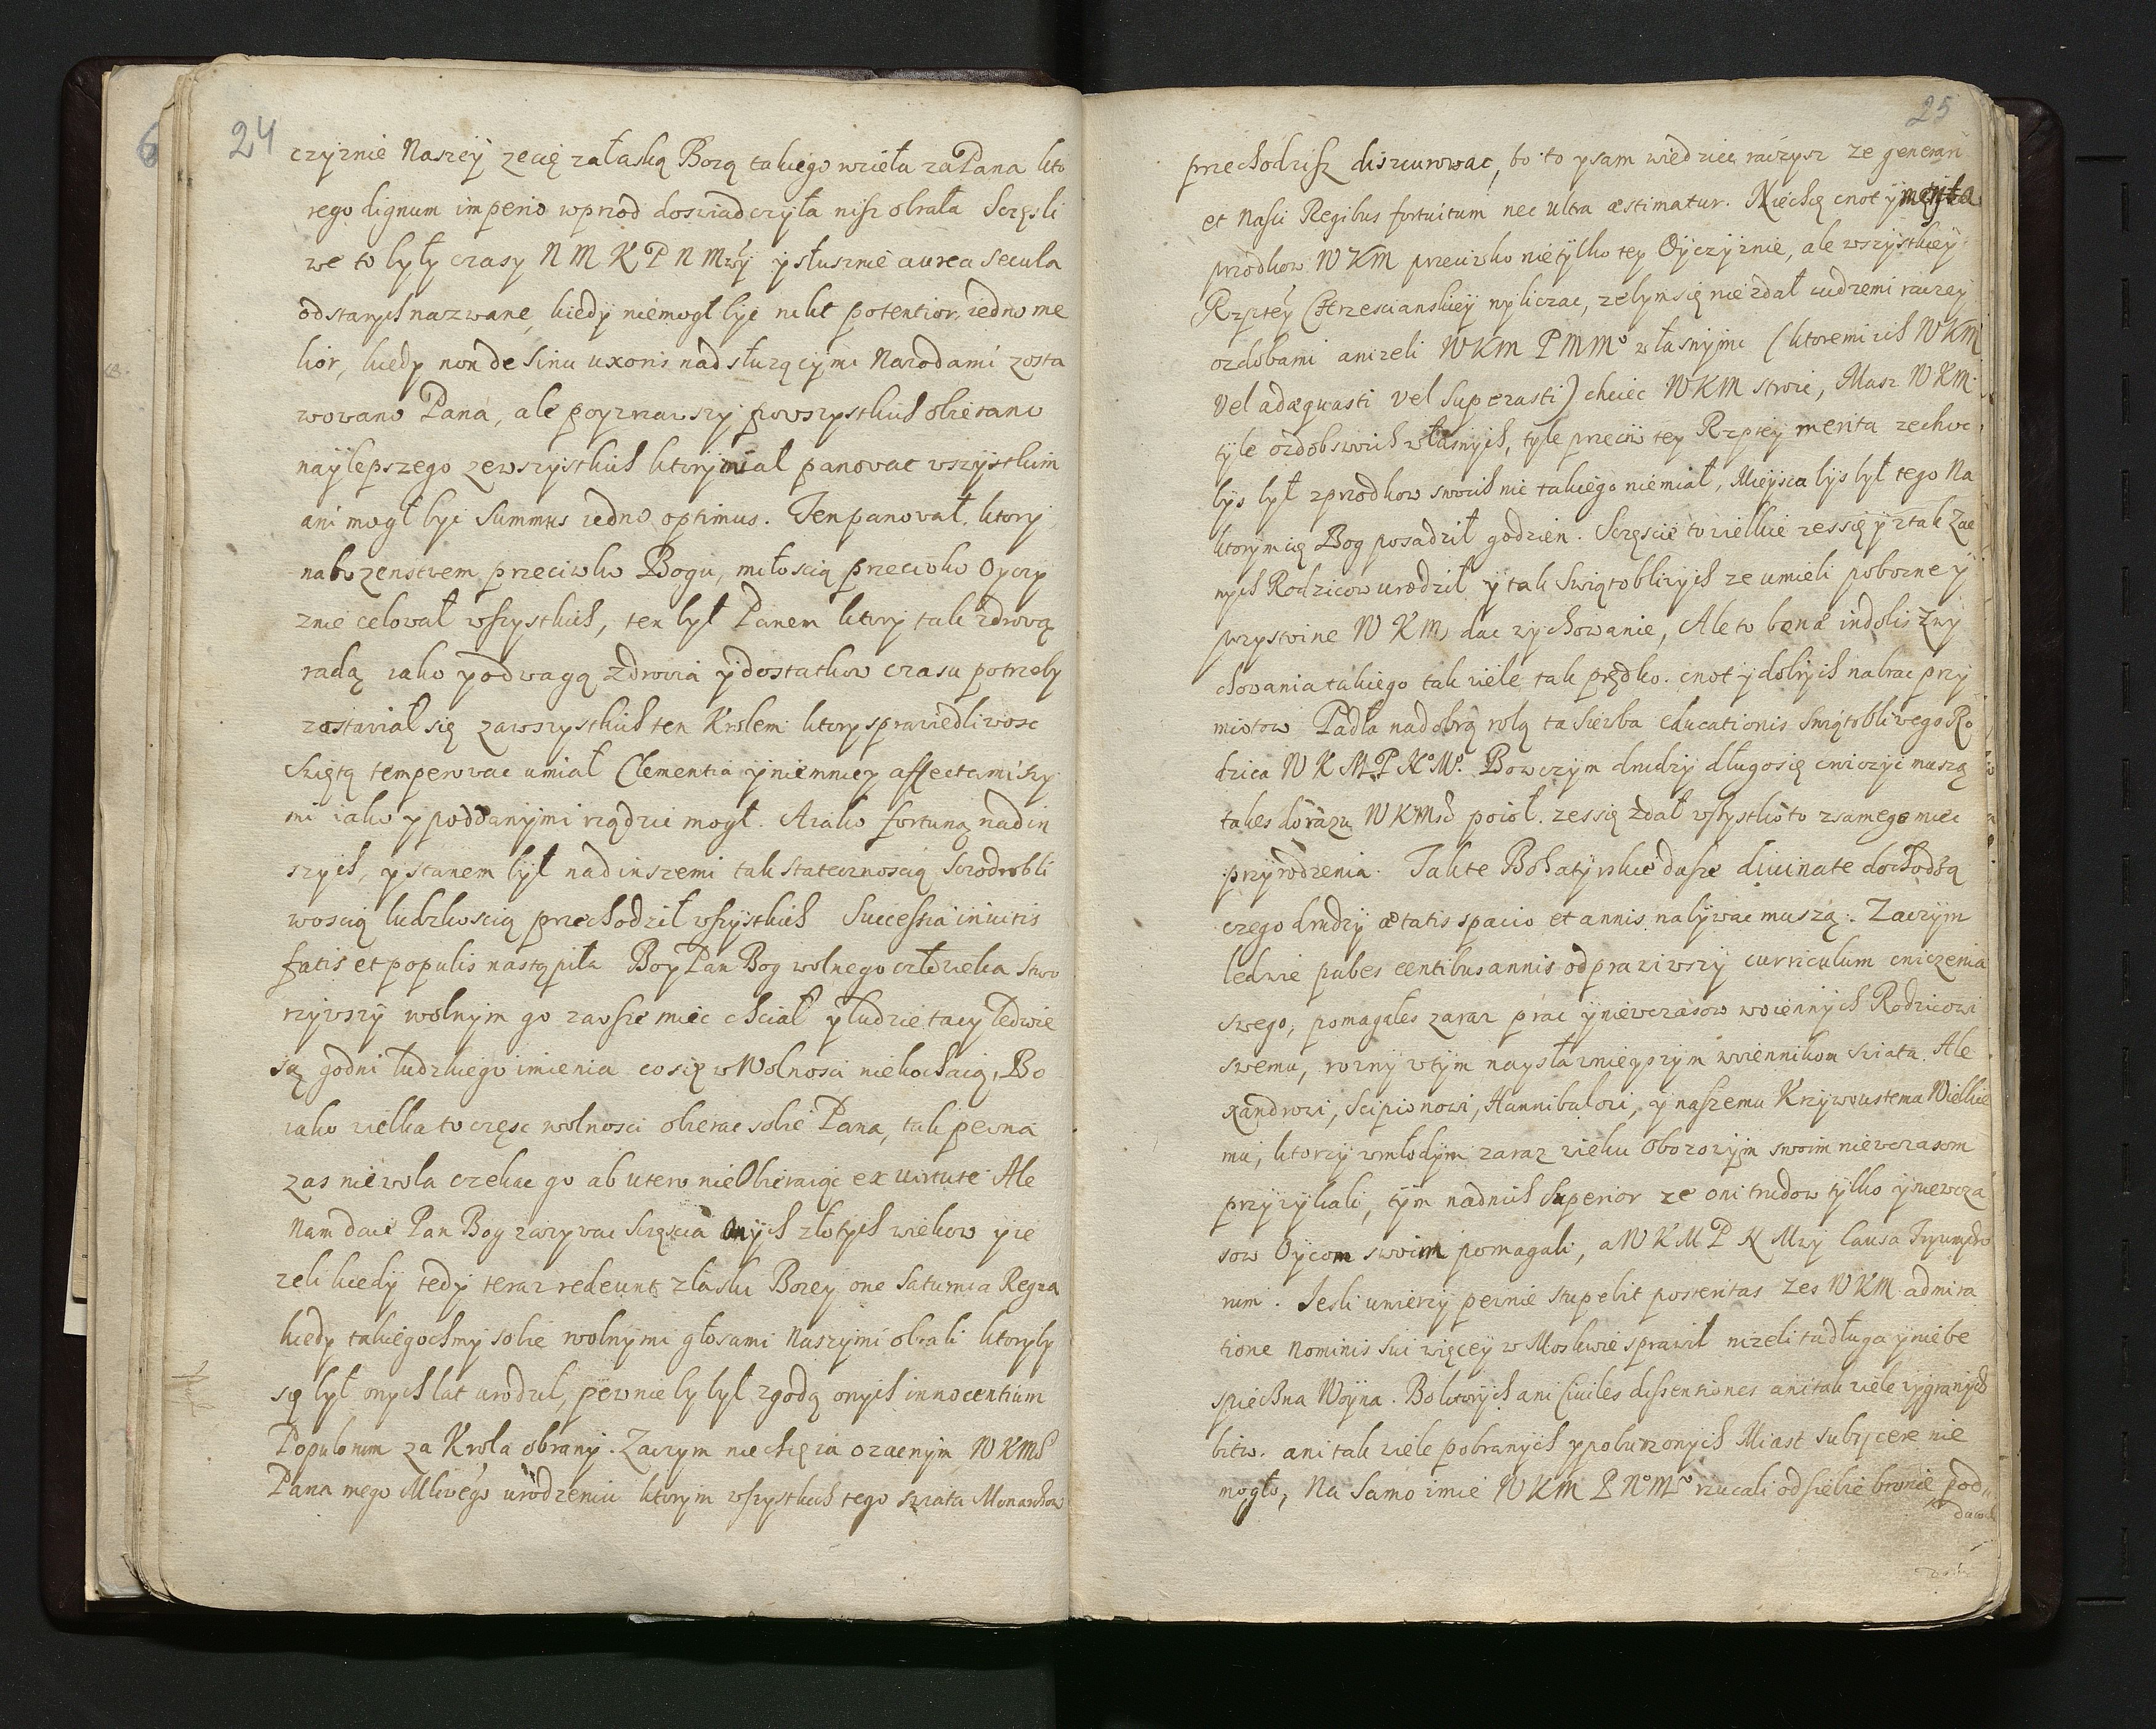 24
czyznie Naszey zecię załaską Bozą takiego wzięła zaPana kto
rego dignum imperio wprzod doswiadczyła nisz obrała Sczęsli
we to były czasy N M K P N Mwy y słusznie aurea secula
odstarych nazwane, kiedy niemogł byc nikt potentior, iedno me
lior, kiedy non de sinu uxoris nad słuzącymi Narodami zosta
wowano Pana, ale poyzrzawszy powszystkich obierano
naylepszego zewszystkich ktory miał panowac wszystkim
ani mogł byc Summus iedno optimus. Ten panował, ktory
nabozenstwem przeciwko Bogu, miłoscią przeciwko Oyczy
znie celował wszystkich, ten był Panem ktory tak zdrową
radą iako y odwagą zdrowia y dostatkow czasu potrzeby
zastawiał się zawszystkich ten Krolem ktory sprawiedliwosc
Swiętą temperowac umiał Clementia y niemniey affectami swy
mi iako y poddanymi rządzic mogł. A iako fortuną nad in
szych, y stanem był nad inszemi tak statecznoscią sczodrobli
woscią ludzkoscią przechodził wszystkich Successia inuitis
fatis et populis nastąpiła Bo y Pan Bog wolnego człowieka stwo
rzywszy wolnym go zawsze miec chciał y ludzie tacy ledwie
są godni ludzkiego imienia co się w Wolnosci niekochaią, Bo
iako wielka to częsc wolnosci obierac sobie Pana, tak pewna
zas niewola czekac go ab utero nie Obieraiąc ex uirtute Ale
Nam daie Pan Bog zazywac sczęscia onych złotych wiekow y ie
zeli kiedy tedy teraz redeunt złaski Bozey one Saturnia Regna
kiedy takiegochmy sobie wolnymi głosami naszymi obrali ktoryby
się był onych lat urodził, pewnie by był zgodą onych innocentium
Populorum za Krola obrany. Zaczym nie chcę ia o zacnym WKMSci
Pana mego Mliwego urodzeniu ktorym wszystkich tego swiata Monarchow
25
przechodzisz discurowac, bo to y sam wiedziec raczysz ze generari
et nasci Regibus fortuitum nec ultra æstimatur. Niechcę cnot y merita
przodkow WKM przeciwko nietylko tey Oyczyznie, ale wszystkiey
Rzptey Chrzescianskiey wyliczac, zebym się nie zdał cudzemi raczey
ozdobami anizeli WKM PMMo własnymi (ktoremi ich WKM
vel adæquasti vel Superasti) chciec WKM stroic, Masz WKM
tyle ozdob swoich własnych, tyle przeciw tey Rzptey merita ze choc
bys był zprzodkow swoich nic takiego niemiał, Mieysca bys był tego na
ktorym cię Bog posadził godzien. Sczęscie to wielkie zessię y ztak zac
nych Rodzicow urodził y tak Swiątobliwych ze umieli pobozne y
przystoine WKM dac wychowanie, Ale to bonæ indolis zwy
chowania takiego tak wiele tak prędko. cnot y dobrych nabrac przy
miotow Padła na dobrą rolą ta siewba educationis swiątobliwego Ro
dzica W K M P N M. Bo w czym drudzy długo się cwiczyc muszą
takes do razu WKMsc poiął. zessię zdał wszystko to z samego miec
przyrodzenia. Takte Bohatyrskie dusze diuinate dochodzą
czego drudzy ætatis spacio et annis nabywac muszą. Zaczym
ledwie pubescentibus annis odprawiwszy curriculum cwiczenia
swego, pomagałes zaraz prac y niewczasow woiennych Rodzicowi
swemu, rowny wtym naysławnieyszym woiennikom swiata Ale
xandrowi, Scipionowi, Hannibalowi, y naszemu Krzywoustemu Wielkie
mu, ktorzy wmłodym zaraz wieku obozowym swoim niewczasom
przywykali, tym nadnich Superior ze oni trudow tylko y niewcza
sow Oycom swoim pomagali, a W K M P N Mwy causa Tryumpho
rum. Jesli umierzy pewnie stupebit posteritas zes WKM admira
tione nominis sui więcey w Moskwie sprawił nizeli ta długa y niebe
spiechna Woyna. Bo ktorych ani Ciuiles dissentiones ani tak wiele wygranych
bitw. ani tak wiele pobranych y poburzonych Miast subycere nie
mogło, Na samo imie WKM P No Mo rzucali od siebie bronie pod